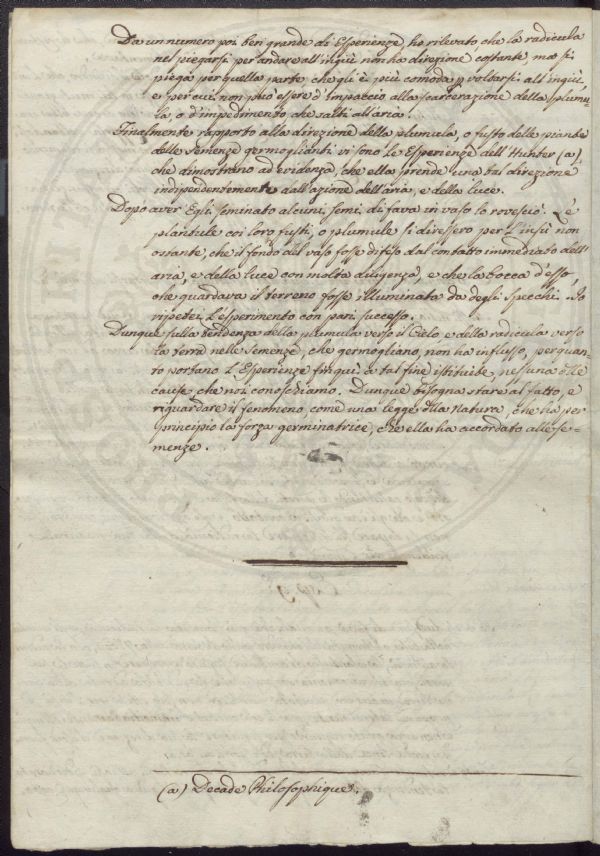 Da un numero poi ben grande di Esperienze, ho rilevato, che la radicula
nel piegarsi per andare all'ingiù non ha direzione costante, ma si
piega per quella parte che gli è più comoda p voltarsi all'ingiù,
e per cui non può essere d'impaccio alla scarcerazione della plumu-
la, o d'impedimento che salti all'aria.
Finalmente rapporto alla direzione della plumula, o fusto delle piante
delle semenze germoglianti vi sono le Esperienze dell'Hunter (a),
che dimostrano ad evidenza, che ella prende una tal direzione
indipendentemente dall'azione dell'aria, e della luce.
Dopo aver Egli seminato alcuni semi di fava in vaso lo rovesciò. Le
plantule coi loro fusti, o plumule si diressero per l'insù non
ostante, che il fondo del vaso fosse difeso dal contatto immediato dell'
aria, e della luce con molta diligenza, e che la bocca d'esso,
che guardava il terreno fosse illuminata da degli specchi. Io
ripetei l'esperimento con pari successo.
Dunque sulla tendenza della plumula verso il Cielo e della radicula verso
la terra nelle semenze, che germogliano, non ha influsso, per quan-
to portano l'Esperienze finquì a tal fine istituite, nessuna delle
cause che noi conoschiamo. Dunque bisogna stare al fatto, e
riguardare il fenomeno, come una legge della Natura, che ha per
principio la forza germinatrice, che ella ha accordato alle se-
menze.
(a) Decade Philosophique.